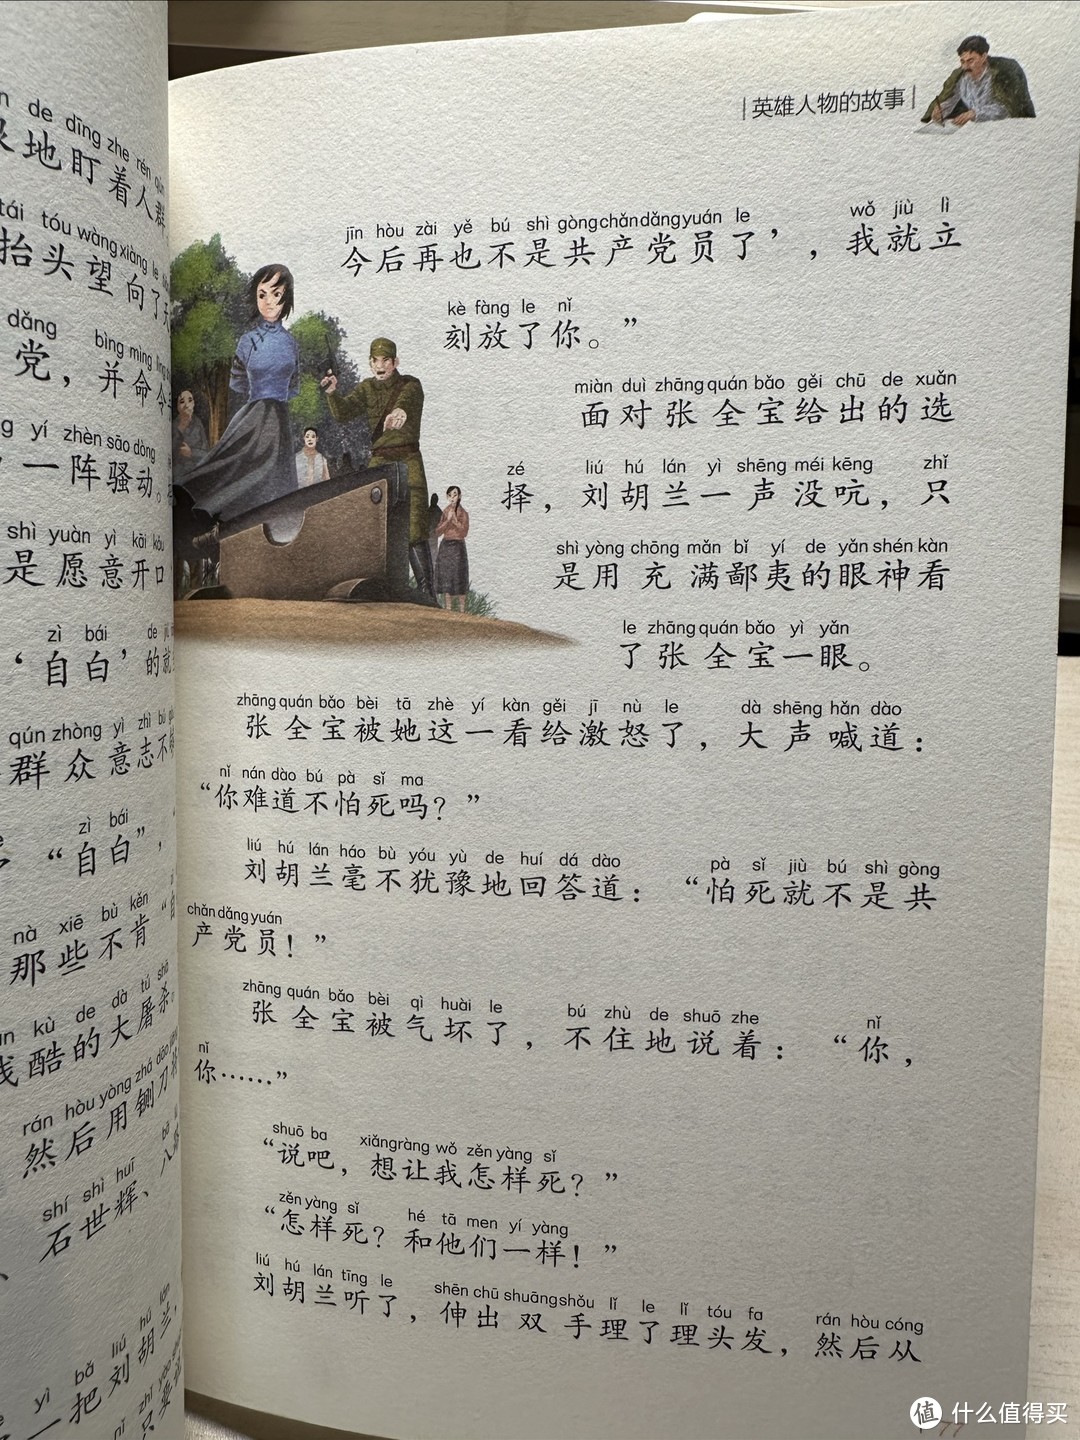 de dīng zhe rén qún
地盯着人群
tái tóu wàng xiàng le
抬头望向了天
dǎng bìng mìng lìng
党，并命令
yí zhèn sāo dòng
一阵骚动。
shì yuàn yì kāi kǒu
是愿意开口
zì bái de jiù
‘自白’的就
qún zhòng yì zhì bù
群众意志不
zì bái
“自白”，
nà xiē bù kěn
那些不肯“自
kù de dà tú shā
残酷的大屠杀。
rán hòu yòng zhá dāo
然后用铡刀
shí shì huī
石世辉、
yì bǎ liú hú lán
一把刘胡兰
英雄人物的故事
jīn hòu zài yě bú shì gòng chǎn dǎng yuán le wǒ jiù lì
今后再也不是共产党员了’，我就立
kè fàng le nǐ
刻放了你。”
miàn duì zhāng quán bǎo gěi chū de xuǎn
面对张全宝给出的选
zé liú hú lán yì shēng méi kēng zhǐ
择，刘胡兰一声没吭，只
shì yòng chōng mǎn bǐ yí de yǎn shén kàn
是用充满鄙夷的眼神看
le zhāng quán bǎo yì yǎn
了张全宝一眼。
zhāng quán bǎo bèi tā zhè yí kàn gěi jī nù le dà shēng hǎn dào
张全宝被她这一看给激怒了，大声喊道：
nǐ nán dào bú pà sǐ ma
“你难道不怕死吗？”
liú hú lán háo bù yóu yù de huí dá dào pà sǐ jiù bú shì gòng
刘胡兰毫不犹豫地回答道：“怕死就不是共
chǎn dǎng yuán
产党员！”
zhāng quán bǎo bèi qì huài le bú zhù de shuō zhe nǐ
张全宝被气坏了，不住地说着：“你，
nǐ
你……”
shuō ba xiǎng ràng wǒ zěn yàng sǐ
“说吧，想让我怎样死？”
zěn yàng sǐ hé tā men yí yàng
“怎样死？和他们一样！”
liú hú lán tīng le shēn chū shuāng shǒu lǐ le lǐ tóu fa rán hòu cóng
刘胡兰听了，伸出双手理了理头发，然后从
77
值 什么值得买